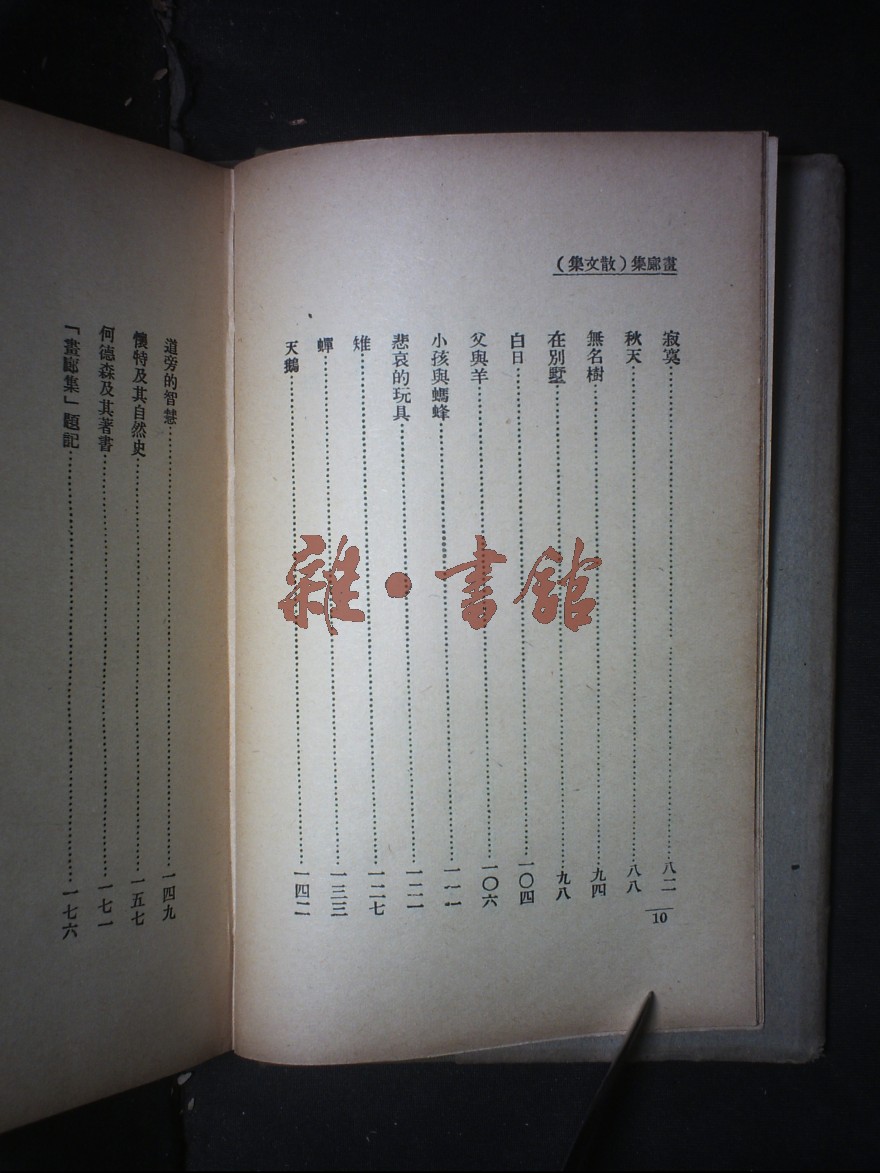 畫廊集（散文集）
寂寞……八二
秋天……八八
無名樹……九四
在別墅……九八
白日……一〇四
父與羊……一〇六
小孩與螞蜂……一一一
悲哀的玩具……一二一
雉……一二七
蟬……一三三
天鵝……一四二
10
道旁的智慧……一四九
懷特及其自然史……一五七
何德森及其著書……一七一
「畫廊集」題記……一七六
雜·書館